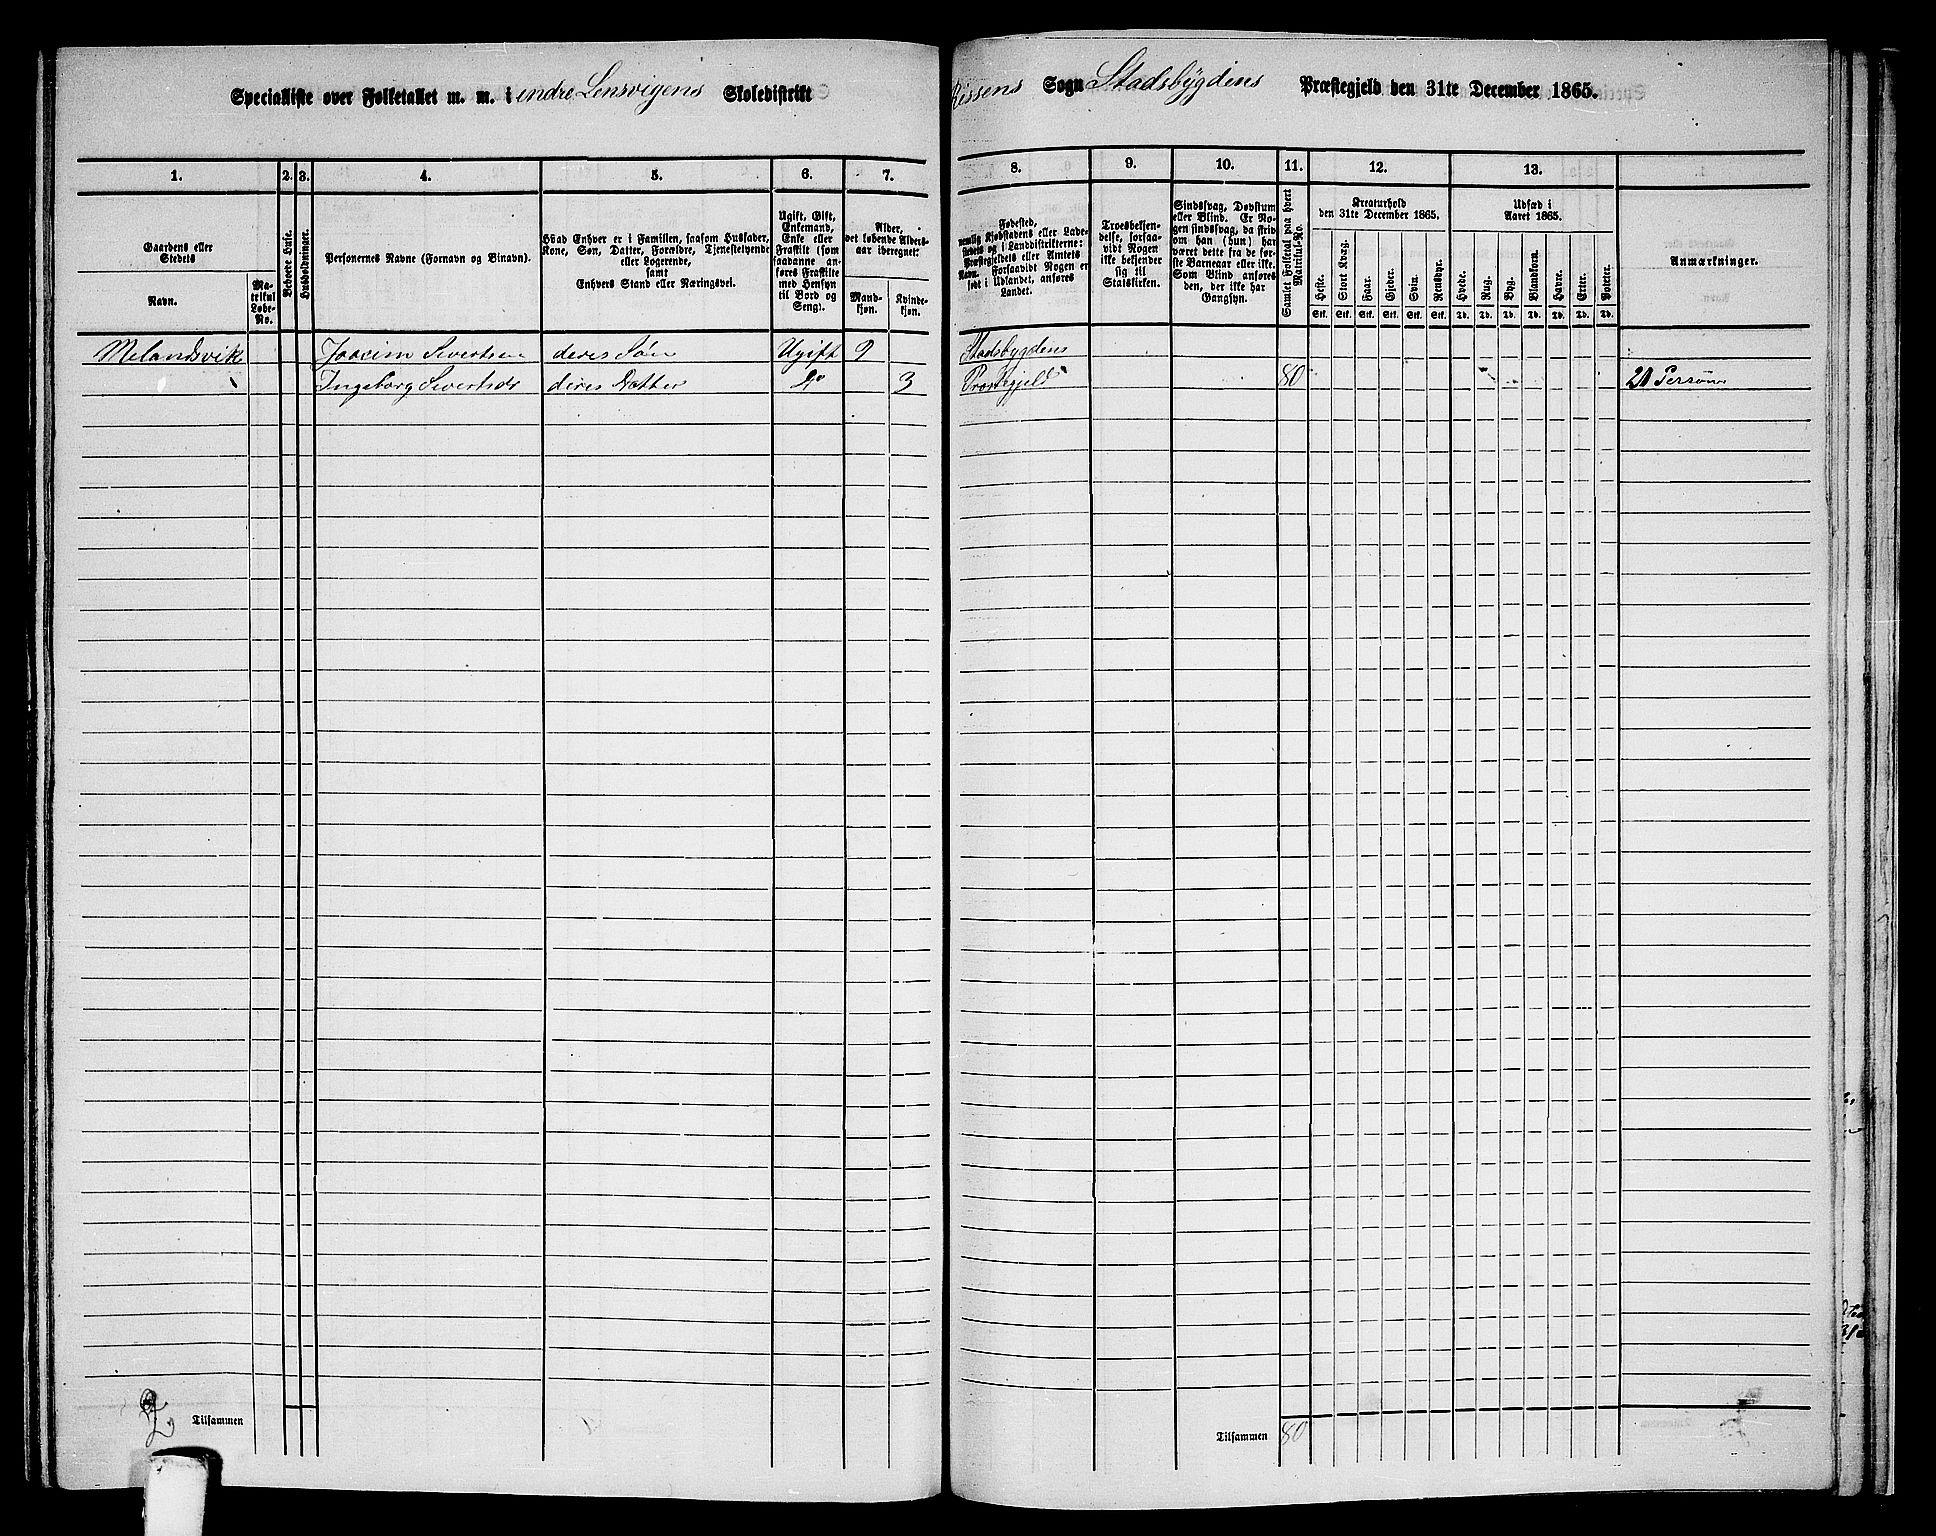 Specialliste over Folketallet m. m. i indre Lensvigens Skoledistrikt Rissens Sogn Stadsbygdens Præstegjeld den 31te December 1865.
1. 2. 3. 4. 5. 6. 7. 8. 9. 10. 11. 12. 13.
Gaardens eller Stedets
Navn.
Matrikul Løbe-No.
Beboede Huse.
Husholdninger.
Personernes Navne (Fornavn og Binavn).
Hvad Enhver er i Familien, saasom Husfader,
Kone, Søn, Datter, Forældre, Tjenestetyende
eller Logerende,
samt
Enhvers Stand eller Næringsvei.
Ugift, Gift,
Enkemand,
Enke eller
Fraskilt (som
saadanne an-
føres Fraskilte
med Hensyn
til Bord og
Seng).
Alder,
det løbende Alders-
aar iberegnet:
Mand-
kjøn.
Kvinde-
kjøn.
Fødested,
nemlig Kjøbstadens eller Lade-
stedets og i Landdistrikterne:
Præstegjeldets eller Amtets
Navn. Forsaavidt Nogen er
født i Udlandet, anføres
Landet.
Troesbekjen-
delse, forsaa-
vidt Nogen
ikke bekjender
sig til
Statskirken.
Sindssvag, Døvstum
eller Blind. Er No-
gen sindssvag, da skriv
om han (hun) har
været dette fra de før-
ste Barneaar eller ikke.
Som Blind anføres
den, der ikke har
Gangsyn.
Samlet Folketal paa hvert
Matrikul-No.
Kreaturhold
den 31te December 1865.
Heste. Stort Kvæg. Faar. Gjeder. Svin. Rensdyr.
Stk. Stk. Stk. Stk. Stk. Stk.
Udsæd i
Aaret 1865.
Hvede. Rug. Byg. Blandkorn. Havre. Erter. Poteter.
Td. Td. Td. Td. Td. Td. Td.
Anmærkninger.
Melandsvik Joacim Sivertsen deres Søn Ugift 9 Stadsbygdens
Ingeborg deres Datter Do 3 Præstegjeld 80 20 Personer
Tilsammen
Tilsammen 80